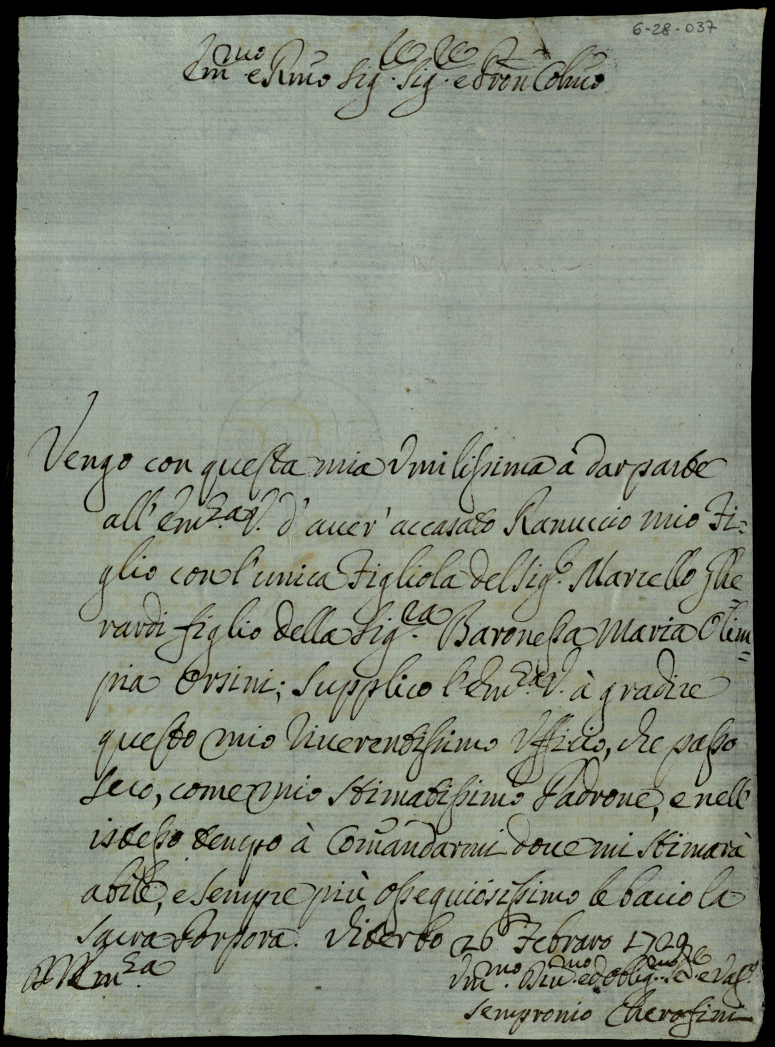 6-28-037
Em.mo e Rmo Sig.re Sig.re e Pron Colmo
Vengo con questa mia Umilissima à dar parte
all' Em.za V. d' auer' accasato Ranuccio mio Fi=
glio con l'unica Figliola del Sig.r Marcello Ghe=
rardi figlio della Sig.ra Baronessa Maria Olim=
pia Orsini; supplico l'Em.za V. à gradire
questo mio Riuerentissimo Ufficio, che passo
seco, come mio Stimatissimo Padrone, e nell'
istesso tempo à Comandarmi doue mi stimarà
abile, e sempre più ossequiosissimo le bacio la
sacra Porpora. Viterbo 26 Febraro 1729
Um.mo Diu.mo ed Oblig.mo Se.re e Vas.
Sempronio Cherofini